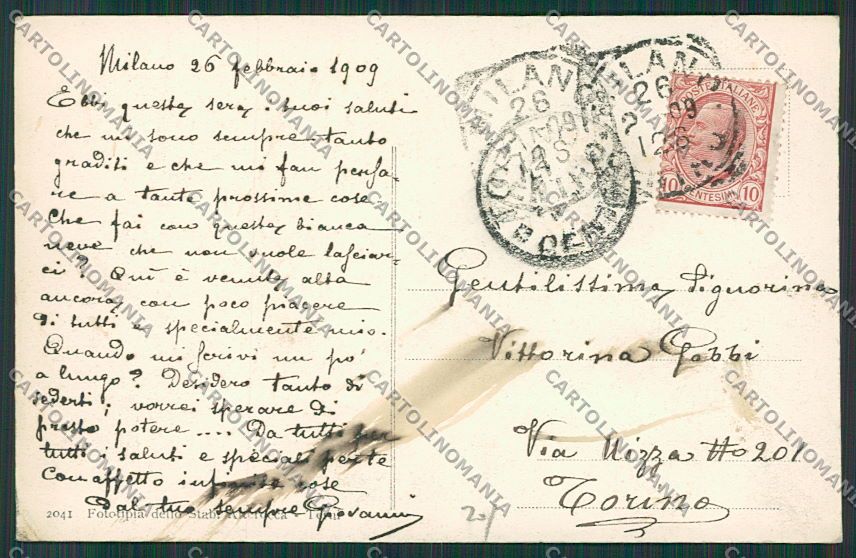 Milano 26 febbraio 1909
Ebbi questa sera i tuoi saluti
che mi sono sempre tanto
graditi e che mi fan pensa-
re a tante prossime cose
Che fai con questa bianca
neve che non vuole lasciar-
ci? Quì è venuta alta
ancora, con poco piacere
di tutti e specialmente mio.
Quando mi scrivi un po'
a lungo? Desidero tanto di
vederti; vorrei sperare di
presto potere .... Da tutti per
tutti i saluti e speciali per te
Con affetto infinite cose
Dal tuo sempre Giovanni
Gentilissima Signorina
Vittorina Gobbi
Via Nizza No 201
Torino
MILANO
26
2 09
12 S
MILANO
26
TORINO
CENTRO
POSTE ITALIANE
10 CENTESIMI 10
2041 Fototipia dello Stab. - Terni
201
CARTOLINOMANIA